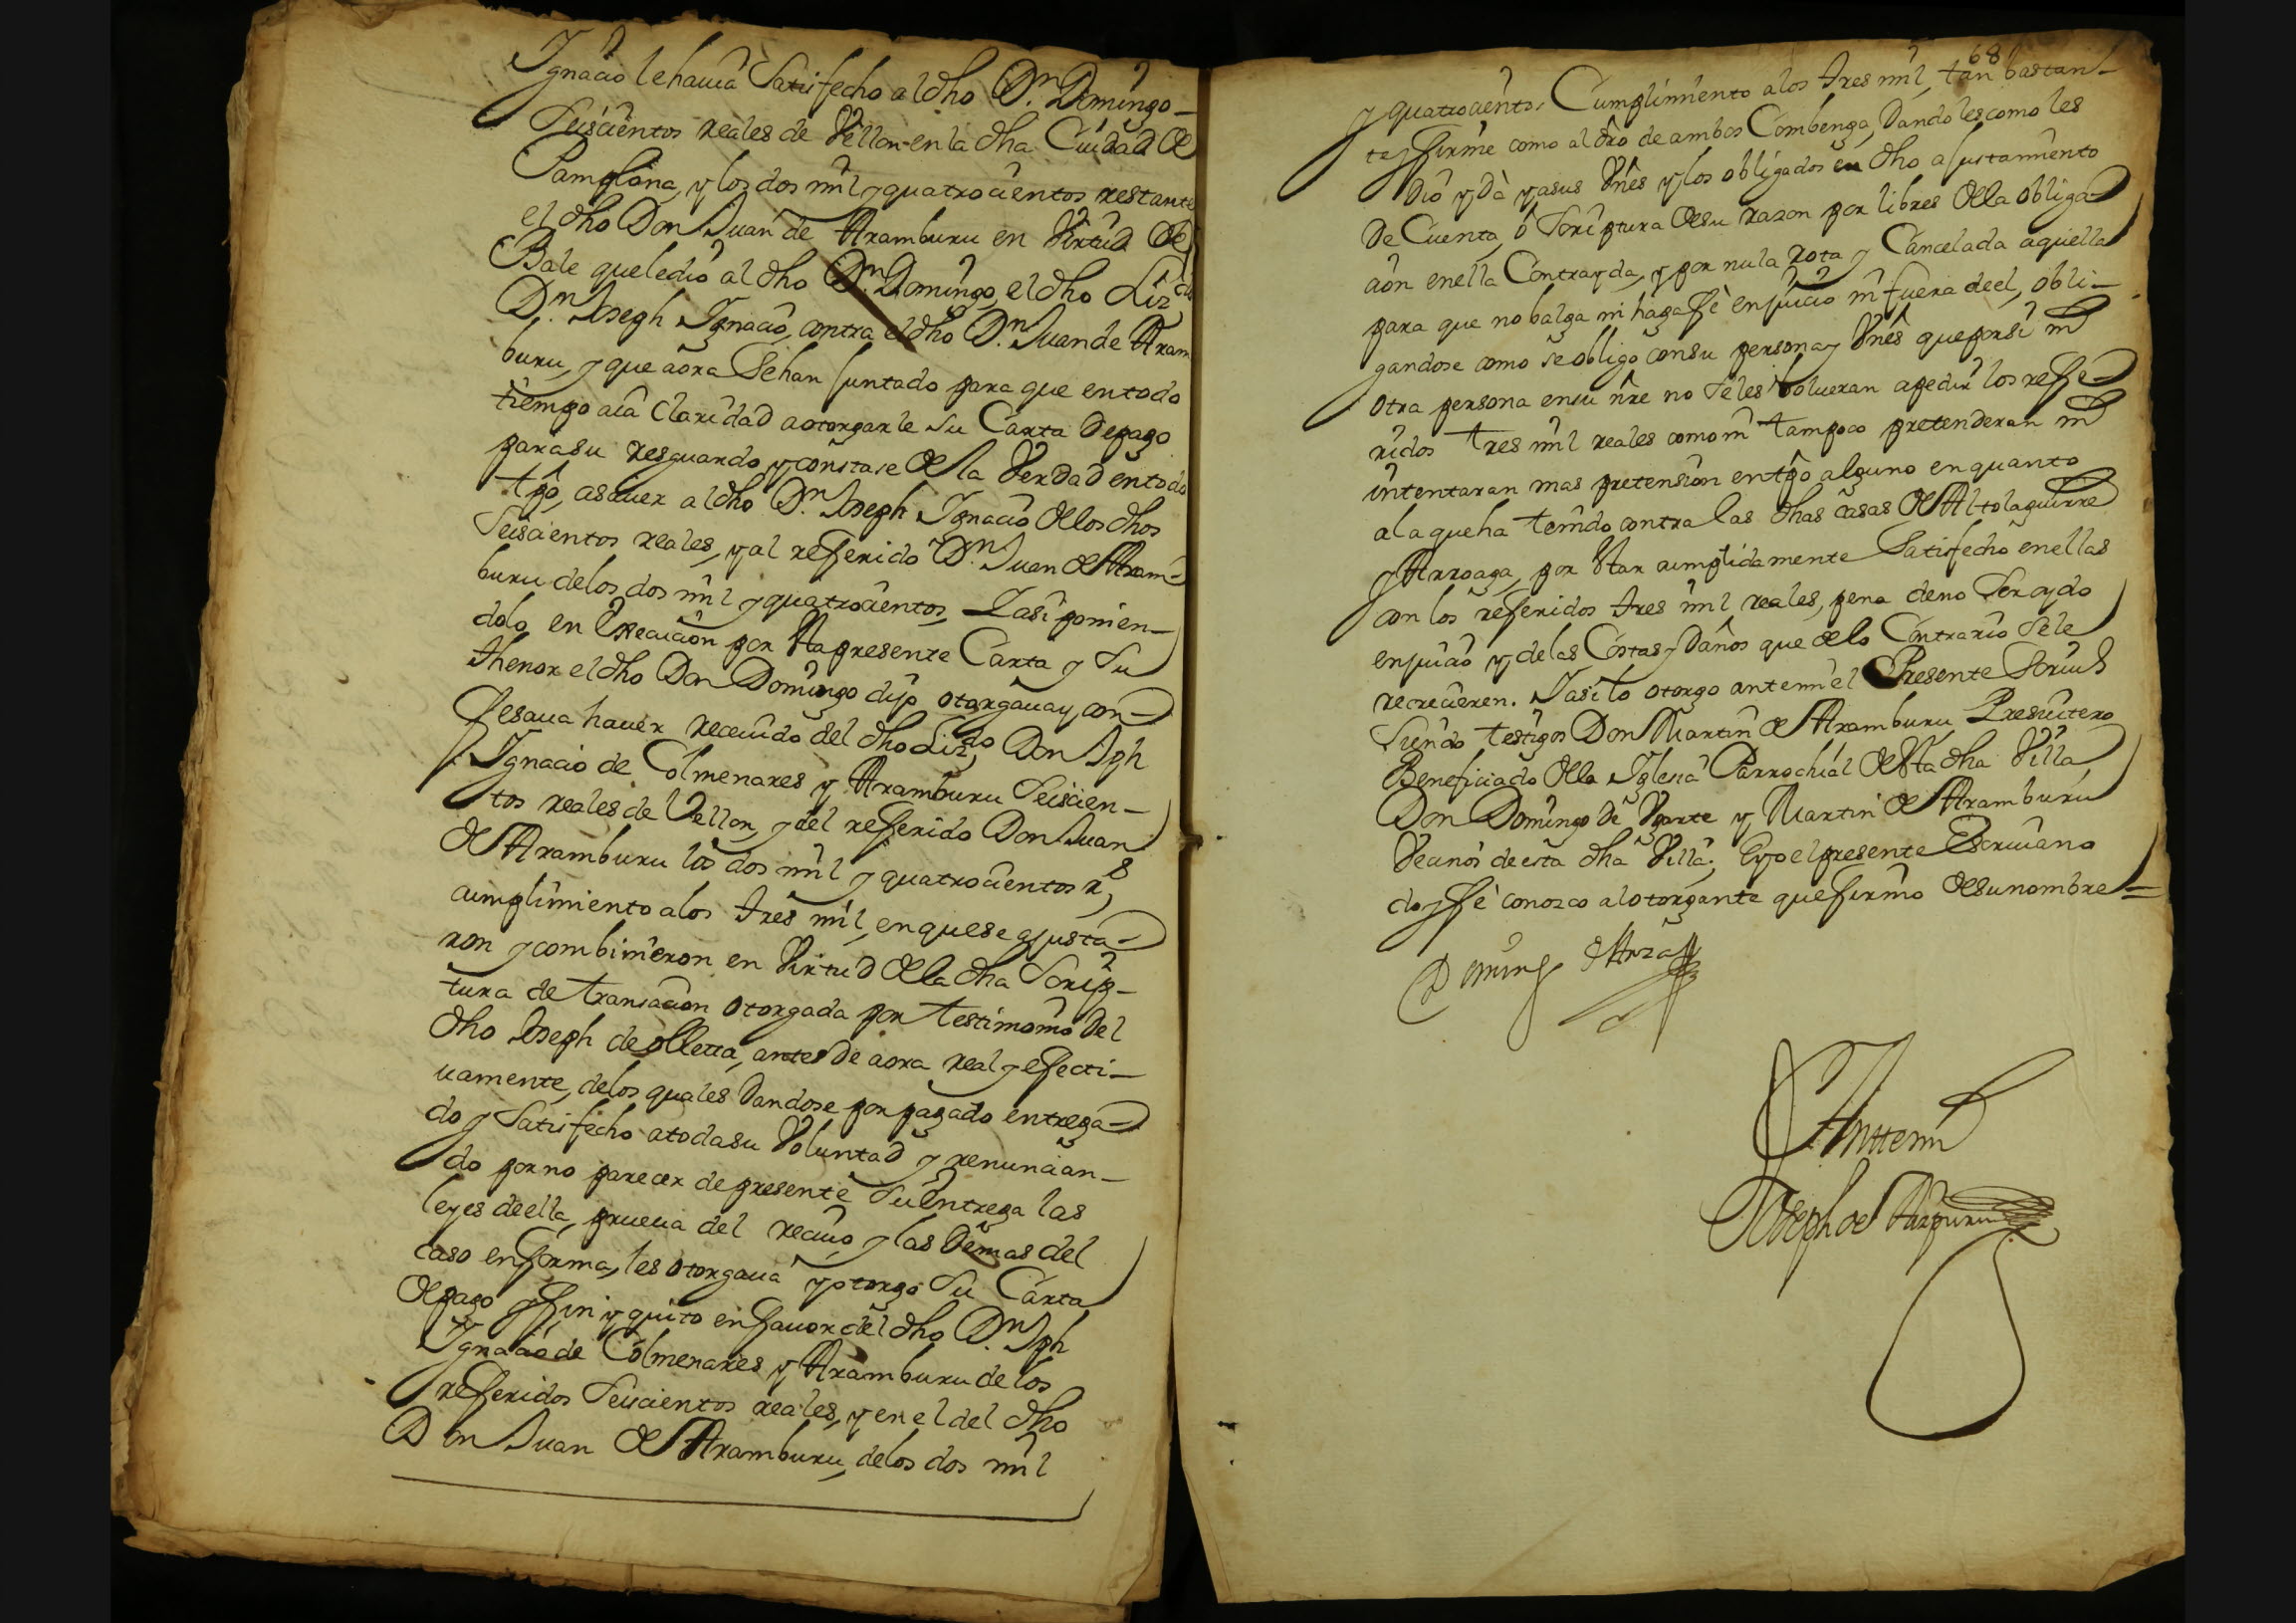 Ignacio le hauia Satisfecho al dho Dn. Domingo
Seiscientos reales de Vellon en la dha Ciudad de
Pamplona, y los dos mil y quatrocientos restante
el dho Don Juan de Aramburu en Virtud de
Bale que le dio al dho Dn. Domingo, el dho Lizdo
Dn. Joseph Ignacio, contra el dho Dn. Juan de Aram
buru, y que aora Se han juntado para que en todo
tiempo aia Claridad a otorgarle Su Carta de pago
para su resguardo, y constase de la Verdad en todo
tpo, asauer al dho Dn. Joseph Ignacio de los dhos
Seiscientos reales, y al refferido Dn. Juan de Aram-
buru de los dos mil y quatrocientos, I asi ponien-
dolo en Execucion por Sta presente Carta y Su
thenor el dho Don Domingo dijo otorgaua y con-
fesaua hauer receuido del dho Lizdo Don Jph
Ignacio de Colmenares y Aramburu Seiscien-
tos reales de Vellon, y del refferido Don Juan
de Aramburu los dos mil y quatrocientos rs
cumplimiento a los tres mil, en que se ajusta-
ron y combinieron en Virtud de la dha Scrip-
tura de transacion otorgada por testimonio del
dho Joseph de olletta, antes de aora real y efecti-
uamente, de los quales Dandose por pagado entrega-
do y Satisfecho a toda su Voluntad y renuncian-
do por no parecer de presente Su Entrega las
leyes de ella, prueua del reciuo y las Demas del
caso en fforma, les otorgaua y otorgo Su Carta
de pago y ffin y quito en ffauor del dho Dn. Jph
Ignacio de Colmenares y Aramburu de los
refferidos Seiscientos reales, y en el del dho
Don Juan de Aramburu, de los dos mil
68
y quatrocientos Cumplimiento a los tres mil, tan bastan-
te y ffirme como al dro de ambos Combenga, Dandoles como les
Dio y Da y a sus Vnes y los obligados en dho ajustamiento
De Cuenta, ó Scriptura de su razon por libres de la obliga-
cion en ella Contrayda, y por nula rota y Cancelada aquella
para que no balga ni haga ffè en juicio ni fuera de el, obli-
gandose como se obligo con su persona y Vnes que por si ni
otra persona en su nre no Se les bolueran a pedir los reffe-
ridos tres mil reales como ni tampoco pretenderan ni
intentaran mas pretension en tpo alguno en quanto
a la que ha tenido contra las dhas casas de Altolaguirre
y Arroaga, por Star cumplidamente Satisfecho en ellas
con los refferidos tres mil reales, pena de no Ser oydo
en juicio y de las Costas y Daños que de lo Contrario Se le
recrecieren. I asi lo otorgo ante mi el Presente Scriuo
Siendo testigos Don Martin de Aramburu Presuitero
Beneficiado de la Iglesia Parrochial de Sta dha Villa
Don Domingo De Vgarte y Martin de Aramburu
Vecinos de esta dha Villa; E yo el presente Escriuano
doy ffè conozco al otorgante que ffirmo de su nombre
Doming de Arza
Antte mi
Joseph de Aizpuru